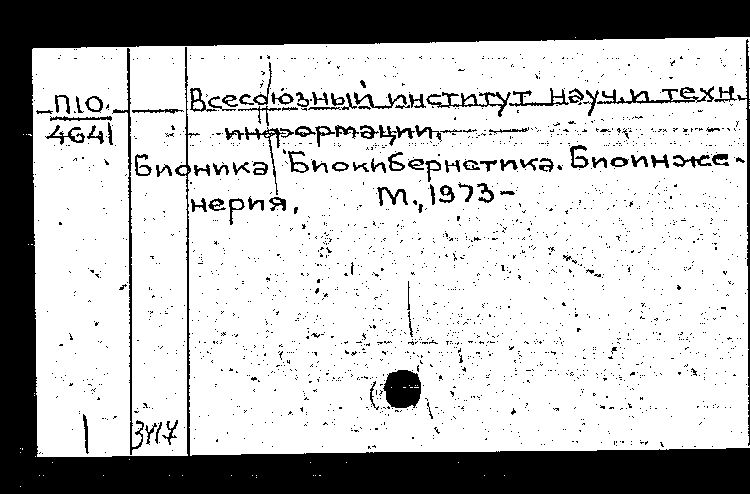 П10. Всесоюзный институт науч. и техн.
4641 информации.
Бионика. Биокибернетика. Биоинже-
нерия. М., 1973-